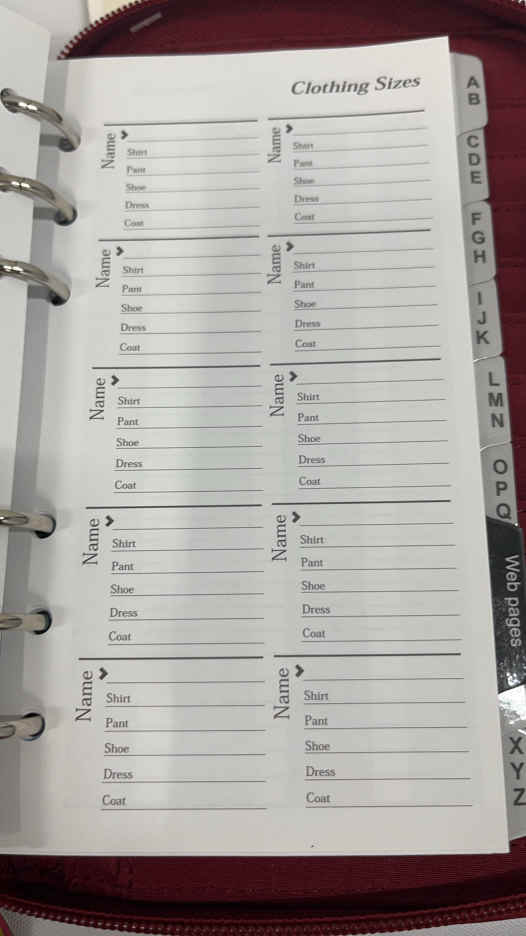 Clothing Sizes
Name
Shirt
Pant
Shoe
Dress
Coat
Name
Shirt
Pant
Shoe
Dress
Coat
Name
Shirt
Pant
Shoe
Dress
Coat
Name
Shirt
Pant
Shoe
Dress
Coat
Name
Shirt
Pant
Shoe
Dress
Coat
Name
Shirt
Pant
Shoe
Dress
Coat
Name
Shirt
Pant
Shoe
Dress
Coat
Name
Shirt
Pant
Shoe
Dress
Coat
Name
Shirt
Pant
Shoe
Dress
Coat
Name
Shirt
Pant
Shoe
Dress
Coat
A
B
C
D
E
F
G
H
I
J
K
L
M
N
O
P
Q
Web pages
X
Y
Z